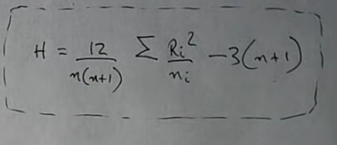 H = 12/n(n+1) Σ Ri²/ni − 3(n+1)